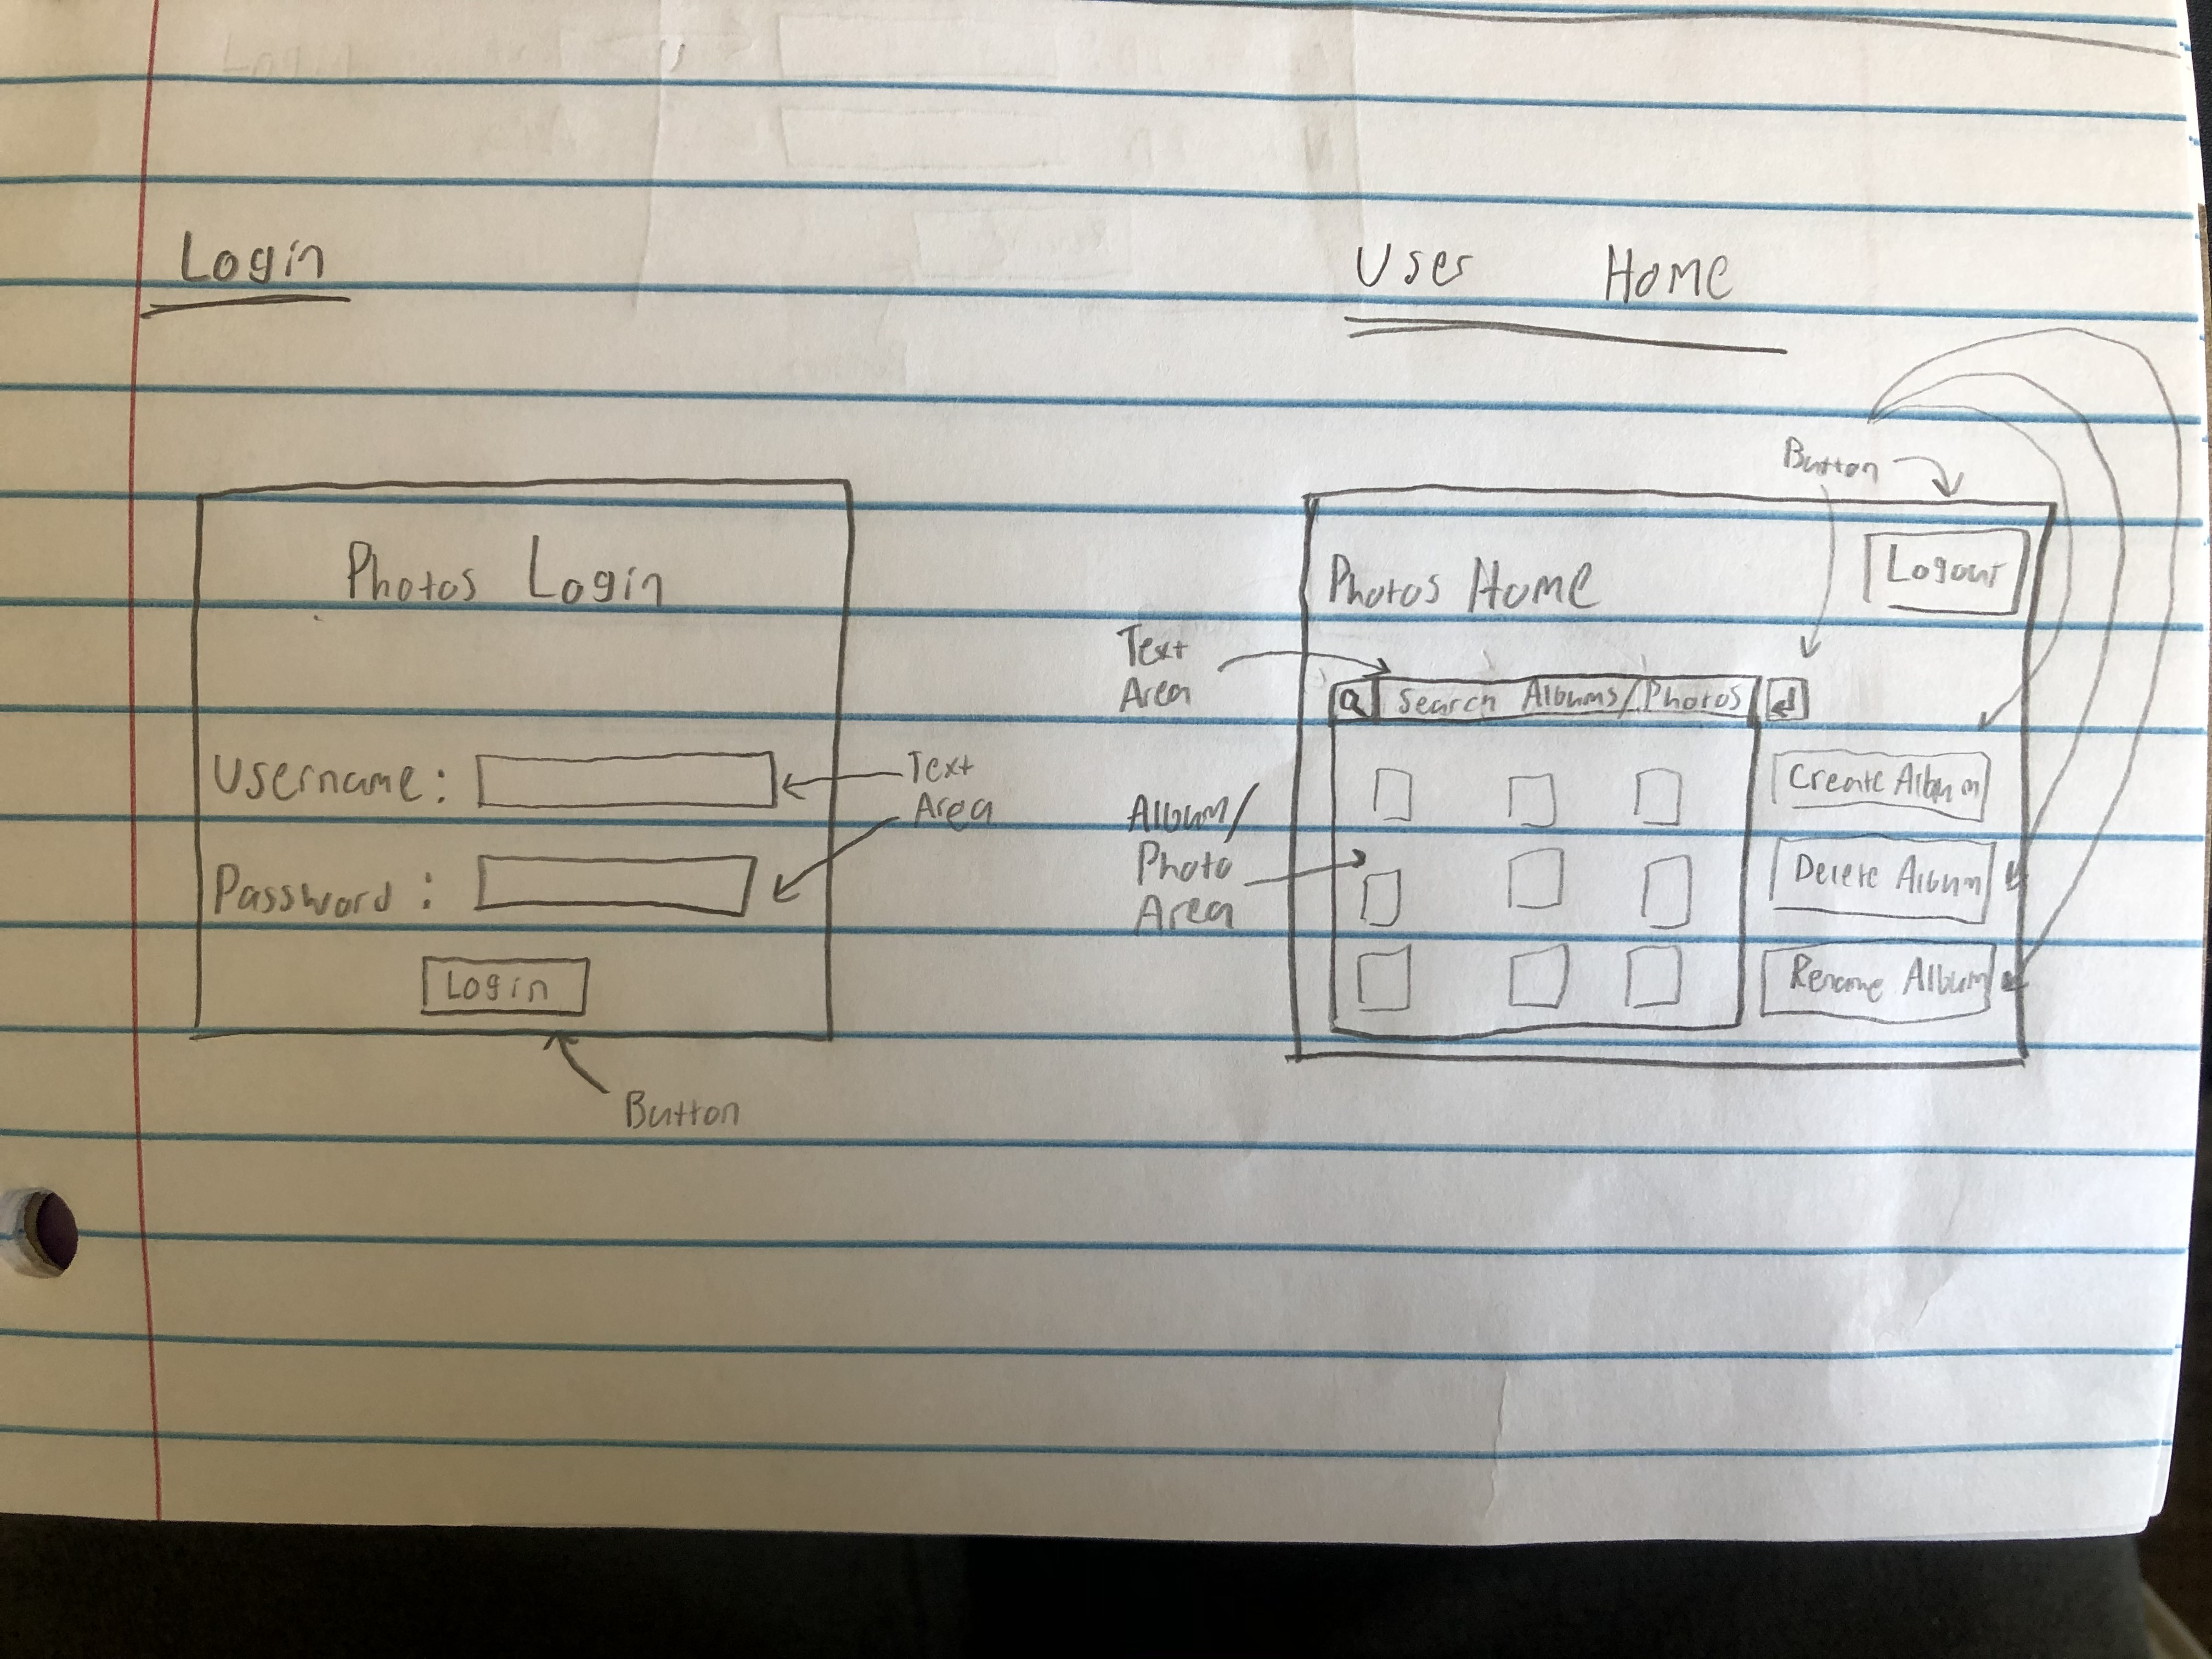 Login
Photos Login
Username:
Password:
Login
Text
Area
Button
User Home
Button
Photos Home
Logout
Text
Area
Search Albums/Photos
Album/
Photo
Area
Create Album
Delete Album
Rename Album